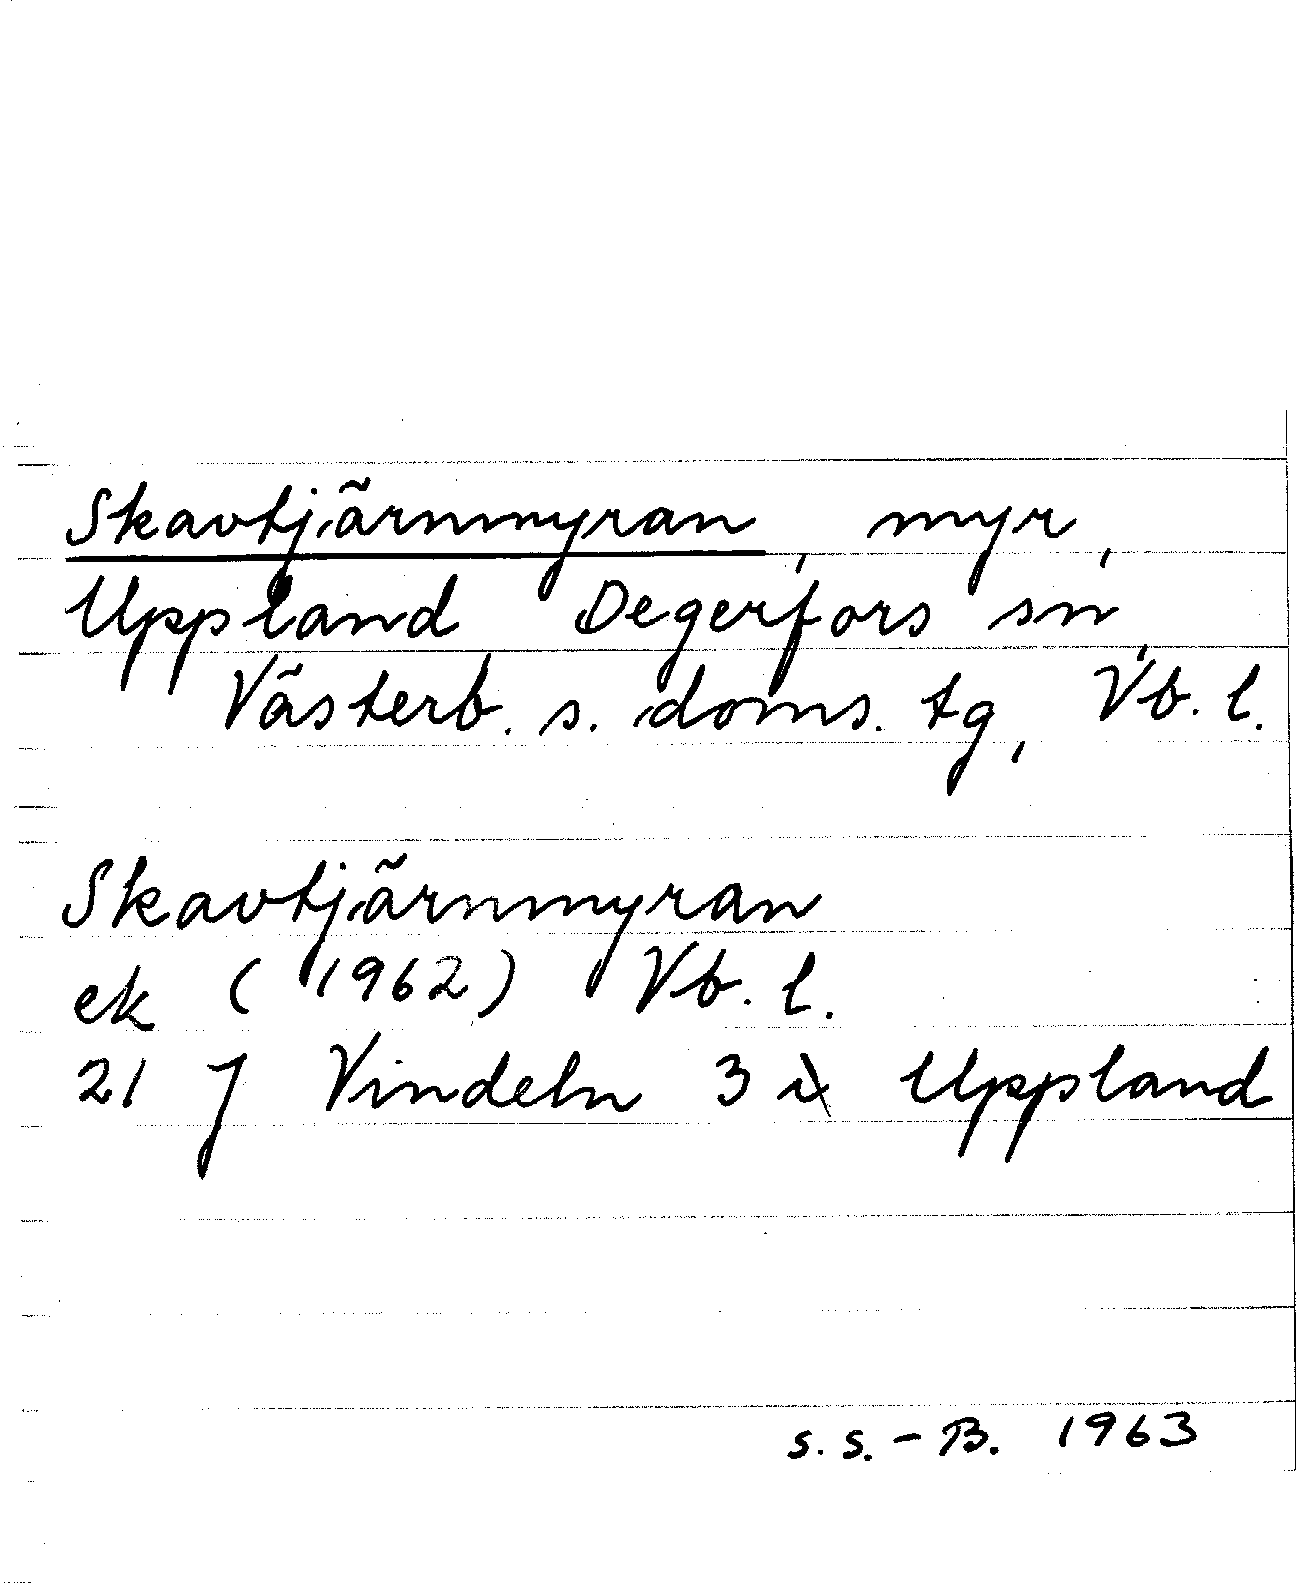 Skavtjärnmyran, myr,
Uppland Degerfors sn,
Västerb. s. doms. tg, Vb. l.
Skavtjärnmyran
ek (1962) Vb. l.
21 J Vindeln 3 i Uppland
s. s. - B. 1963